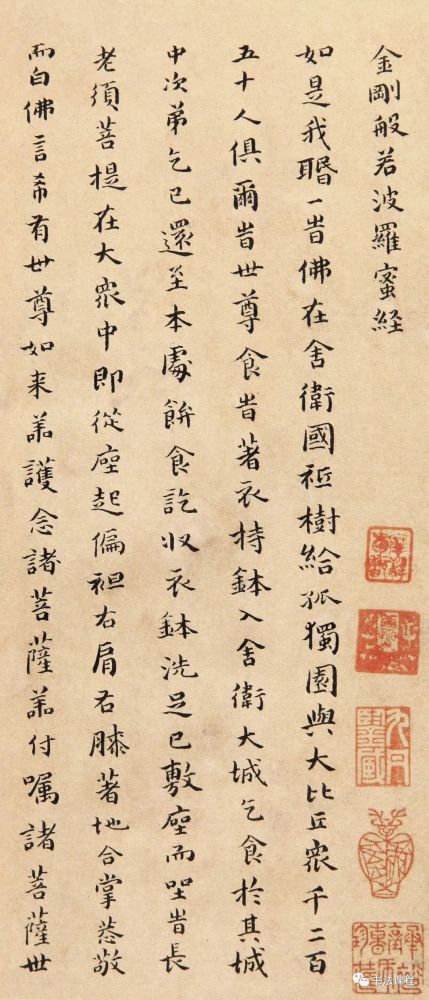 金剛般若波羅蜜経
如是我䎽一旹佛在舍衛國祇樹給孤獨園與大比丘眾千二百
五十人俱爾旹世尊食旹著衣持鉢入舍衛大城乞食於其城
中次弟乞已還至本處餅食訖收衣鉢洗足已敷座而坐旹長
老須菩提在大眾中即從座起偏袒右肩右膝著地合掌恭敬
而白佛言希有世尊如来善護念諸菩薩善付囑諸菩薩世
书法课程